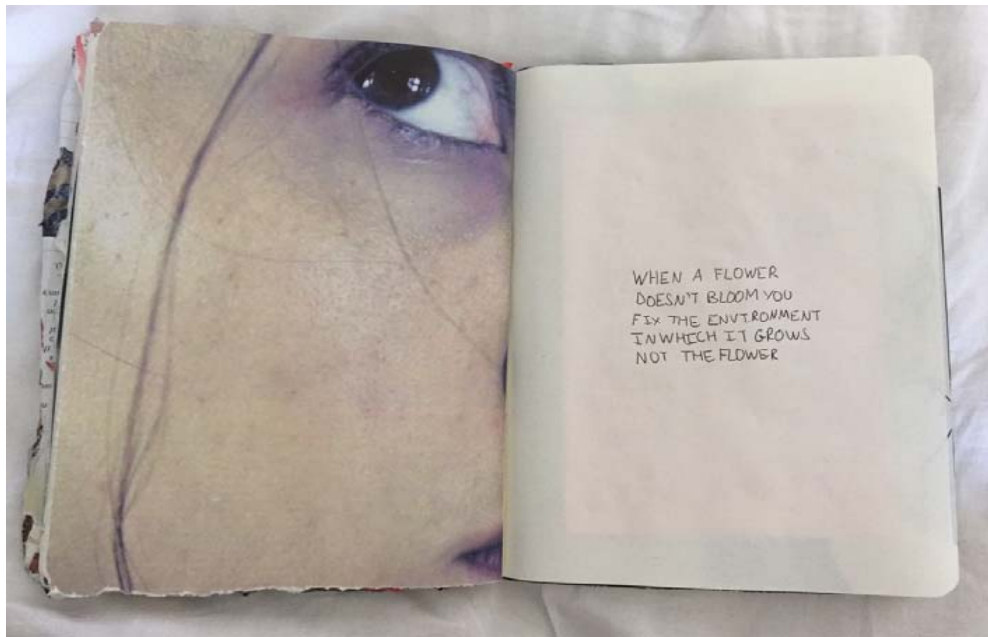 WHEN A FLOWER
DOESN'T BLOOM YOU
FIX THE ENVIRONMENT
IN WHICH IT GROWS
NOT THE FLOWER